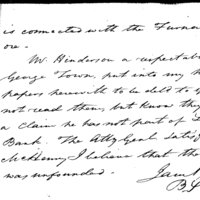 is connected with the Furnace
ore.
Mr. Henderson a respectab
George Town, put into my h
papers herewith to be deld to y
not read them, but know they
a claim he has not part of L
Bank. The Atty Genl Satisf
McHenry I believe that th
was unfounded.
Jam
B. L